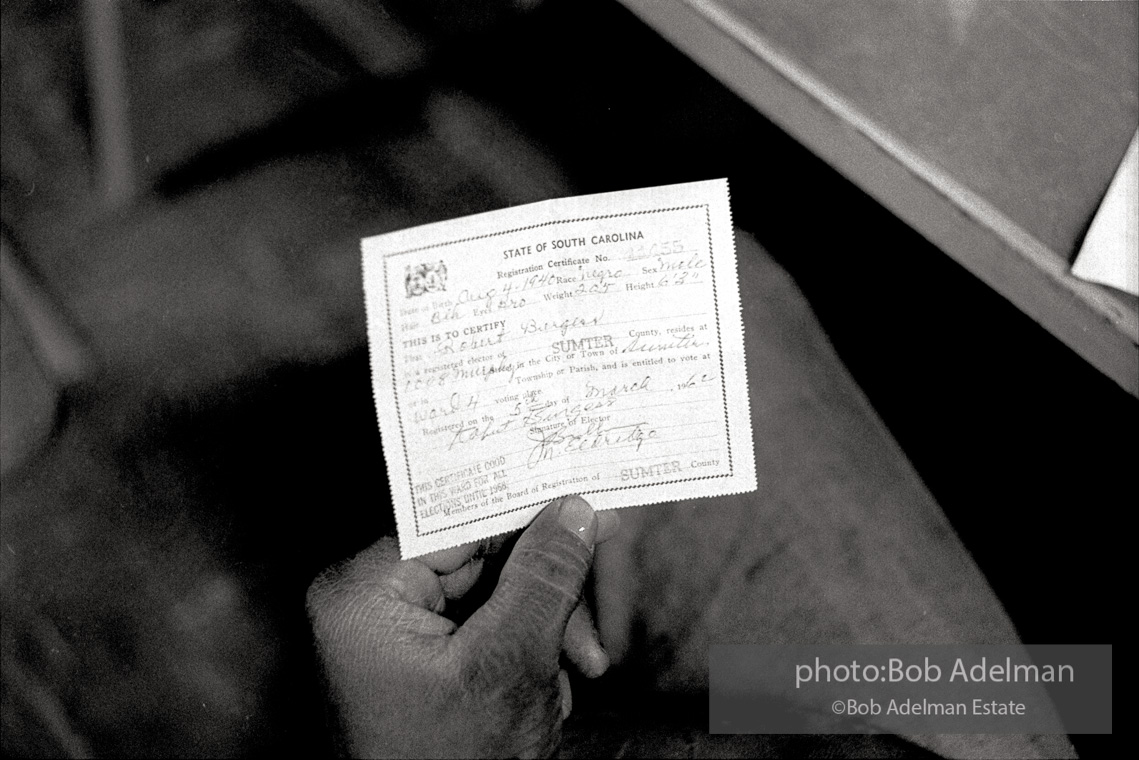 STATE OF SOUTH CAROLINA
Registration Certificate No.
Date of Birth Aug 4-1940 Race negro Sex Male
Hair Blk Eyes Bro Weight 205 Height 6'2"
THIS IS TO CERTIFY
That Robert Burgess
is a registered elector of SUMTER County, resides at
in the City or Town of Sumter
or in Township or Parish, and is entitled to vote at
Ward 4 voting place.
Registered on the 5th day of March, 1962
Robert Burgess
Signature of Elector
THIS CERTIFICATE GOOD
IN THIS WARD FOR ALL
ELECTIONS UNTIL 1968
Members of the Board of Registration of SUMTER County
photo:Bob Adelman
©Bob Adelman Estate